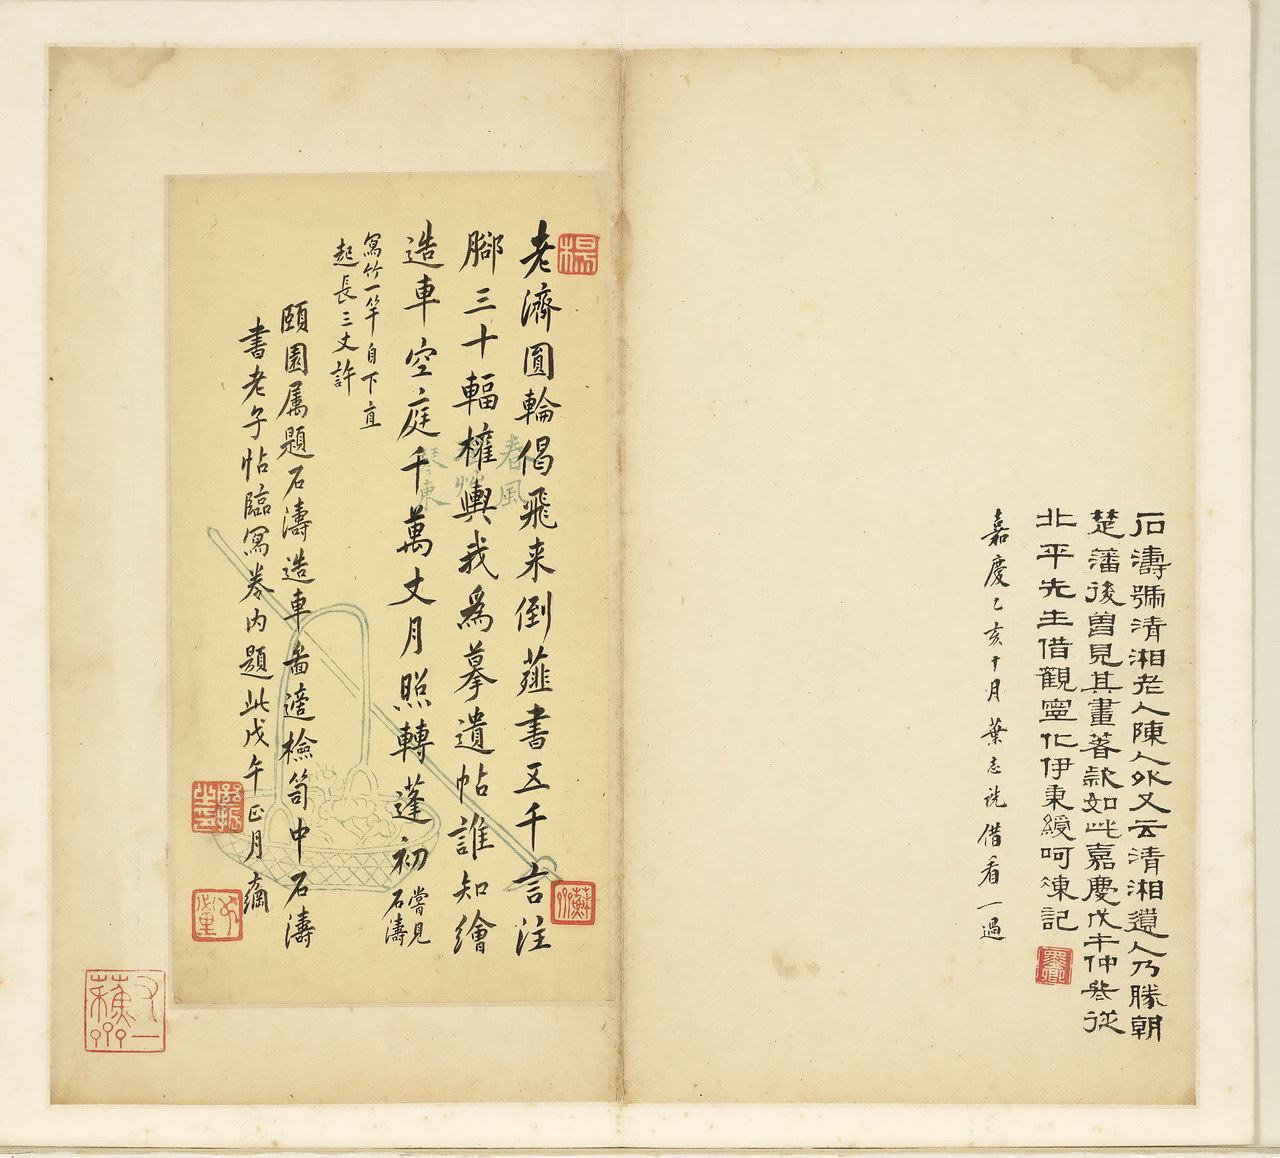 石濤號清湘老人陳人外又云清湘遺人乃勝朝
楚藩後曾見其畫著款如此嘉慶戊午仲冬從
北平先生借觀寧化伊秉綬呵凍記
嘉慶乙亥十月葉志詵借看一過
老濟圓輪偈飛来倒薤書五千言注
腳三十輻權輿我爲摹遺帖誰知繪
造車空庭千萬丈月照轉蓬初
嘗見
石濤
寫竹一竿自下直
起長三丈許
頤園属題石濤造車畵適檢笥中石濤
書老子帖臨寫卷内題此戊午正月
春風